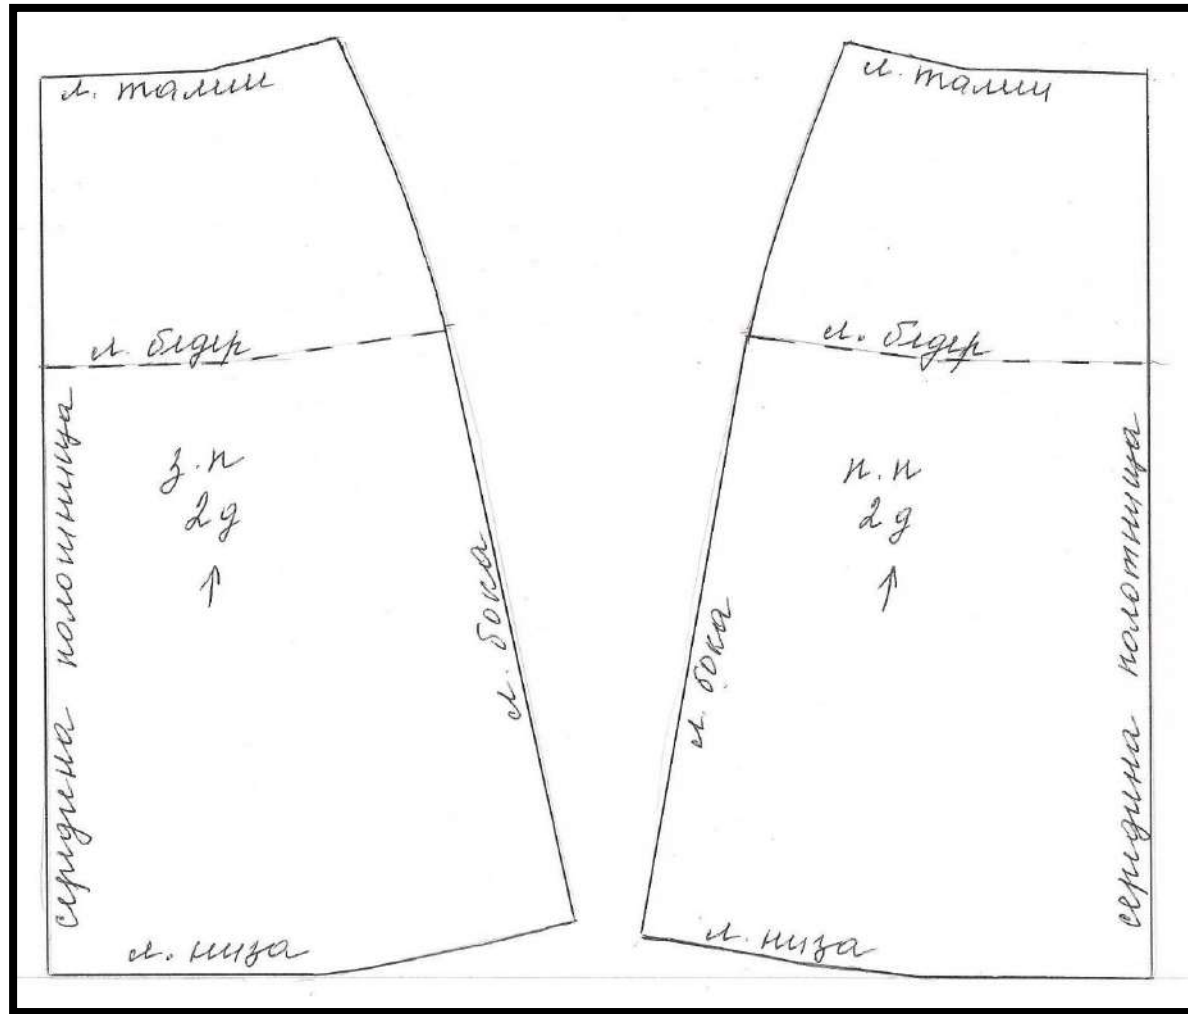 л. талии
л. бедер
середина полотнища
з. п
2 д
л. бока
л. низа
л. талии
л. бедер
п. п
2 д
л. бока
середина полотнища
л. низа